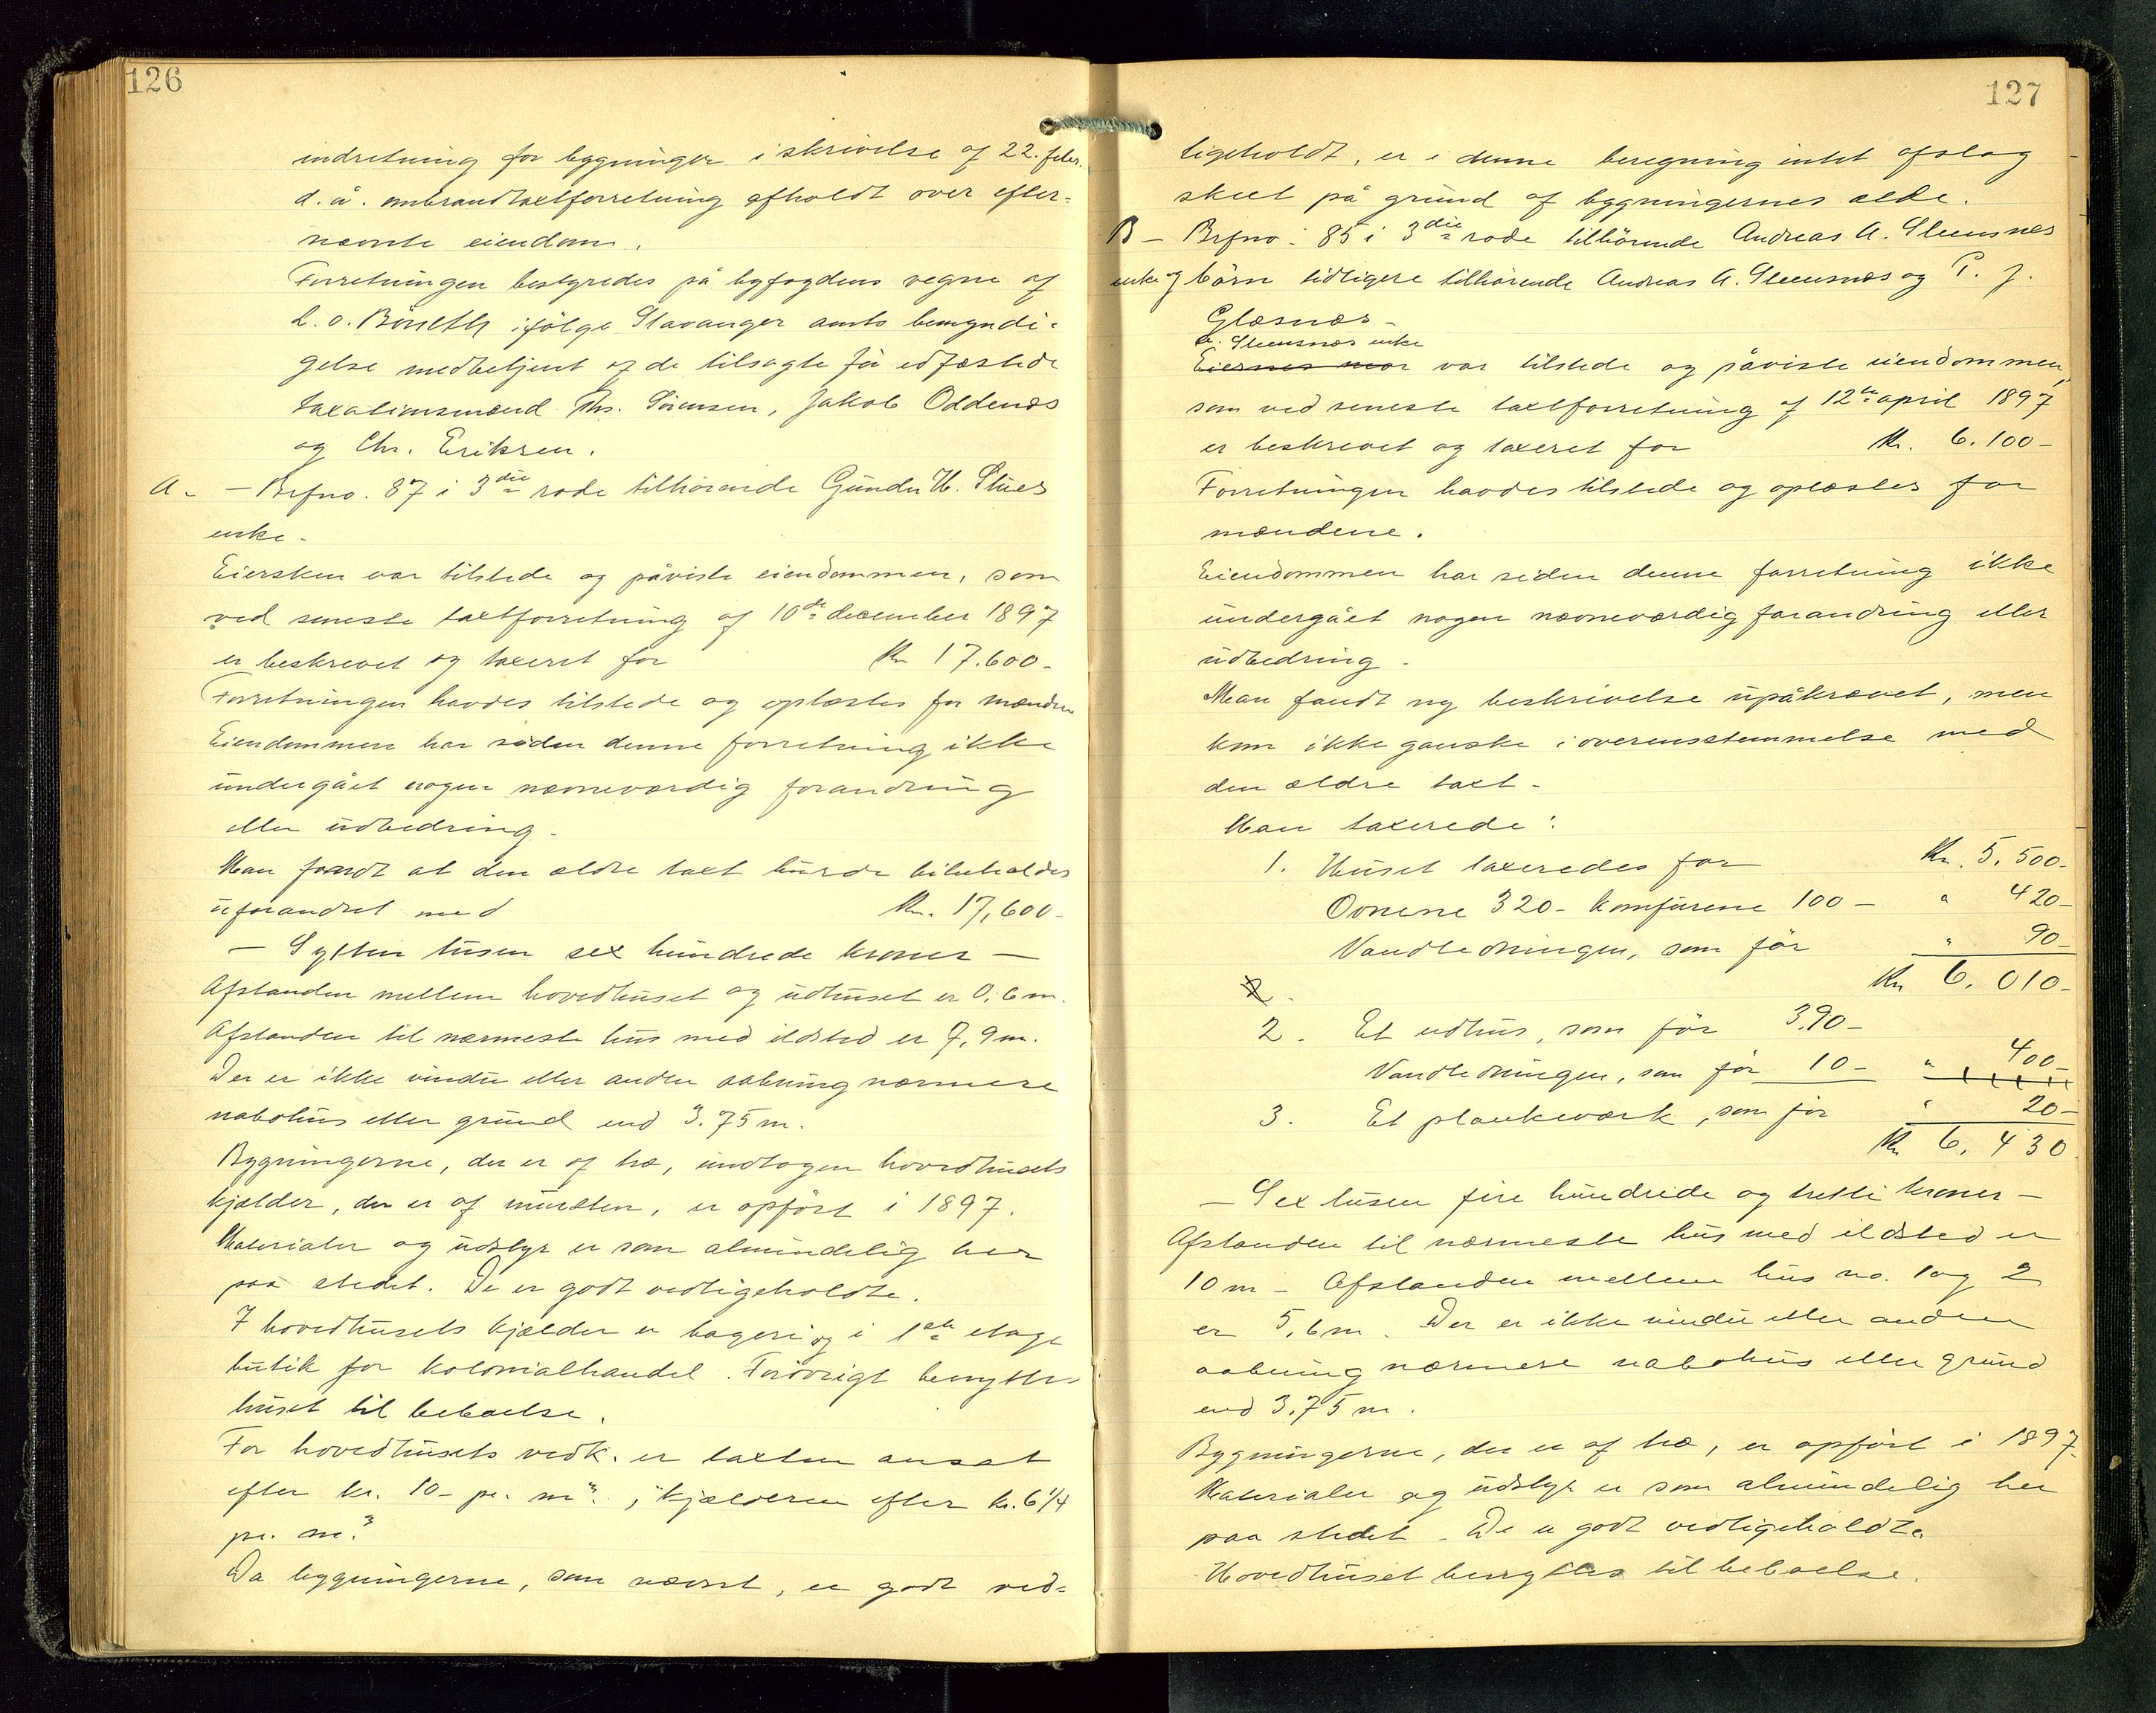 126
indretning for bygninger i skrivelse af 22. febr.
d. å. ombrandtaxtforretning afholdt over efter-
nævnte eiendom.
Forretningen bestyredes på byfogdens vegne af
L. O. ifølge Stavanger amts bemyndi-
gelse medbetjent af de tilsagte før edfæstede
taxationsmænd Ths. Sørensen, Jakob Oddenes
og Chr. Eriksen.
A. — Brfno. 87 i 3die rode tilhørende Gunder H.
enke.
Eiersken var tilstede og påviste eiendommen, som
ved seneste taxtforretning af 10de december 1897
er beskrevet og taxeret for Kr. 17.600-
Forretningen havdes tilstede og oplæstes for mændene
Eiendommen har siden denne forretning ikke
undergået nogen nævneværdig forandring
eller udbedring.
Man fandt at den ældre taxt burde bibeholdes
uforandret med Kr. 17,600-
— Sytten tusen sex hundrede kroner —
Afstanden mellem hovedhuset og udhuset er 0,6 m.
Afstanden til nærmeste hus med ildsted er 7,9 m.
Der er ikke vindu eller anden aabning nærmere
nabohus eller grund end 3.75 m.
Bygningerne, der er af træ, undtagen hovedhusets
kjælder, der er af mursten, er opført i 1897.
Materialer og udstyr er som almindelig her
paa stedet. De er godt vedligeholdte.
I hovedhusets kjælder er bageri og i 1ste etage
butik for kolonialhandel. Forøvrigt benyttes
huset til beboelse.
For hovedhusets vedk. er taxten ansat
efter kr. 10- pr. m³., i kjælderen efter kr. 6 1/4
pr. m³
Da bygningerne, som nævnt, er godt ved-
127
ligeholdt, er i denne beregning intet afslag
skeet på grund af bygningernes ælde.
B — Brfno: 85 i 3die rode tilhørende Andreas A. Steensnes
enke og børn tidligere tilhørende Andreas A. Steensnæs og T. J.
Glæsnæs-
A. Steensnæs enke
Eiernes mor var tilstede og påviste eiendommen,
som ved seneste taxtforretning af 12te april 1897
er beskrevet og taxeret for Kr. 6.100-
Forretningen havdes tilstede og oplæstes for
mændene.
Eiendommen har siden denne forretning ikke
undergået nogen nævneværdig forandring eller
udbedring.
Man fandt ny beskrivelse upåkrævet, men
kom ikke ganske i overensstemmelse med
den ældre taxt-
Man taxerede:
1. Huset taxeredes for Kr. 5.500-
Ovnene 320- Komfurene 100- " 420-
Vandledningen, som før " 90-
Kr 6.010-
2.
2. Et udhus, som før 390-
Vandledningen, som før 10- " 400-
3. Et plankeværk, som før " 20-
Kr 6.430
— Sex tusen fire hundrede og tretti kroner —
Afstanden til nærmeste hus med ildsted er
10 m - Afstanden mellem hus no. 1 og 2
er 5,6 m. Der er ikke vindu eller anden
aabning nærmere nabohus eller grund
end 3.75 m.
Bygningerne, der er af træ, er opført i 1897.
Materialer og udstyr er som almindelig her
paa stedet. De er godt vedligeholdte
Hovedhuset benyttes til beboelse.